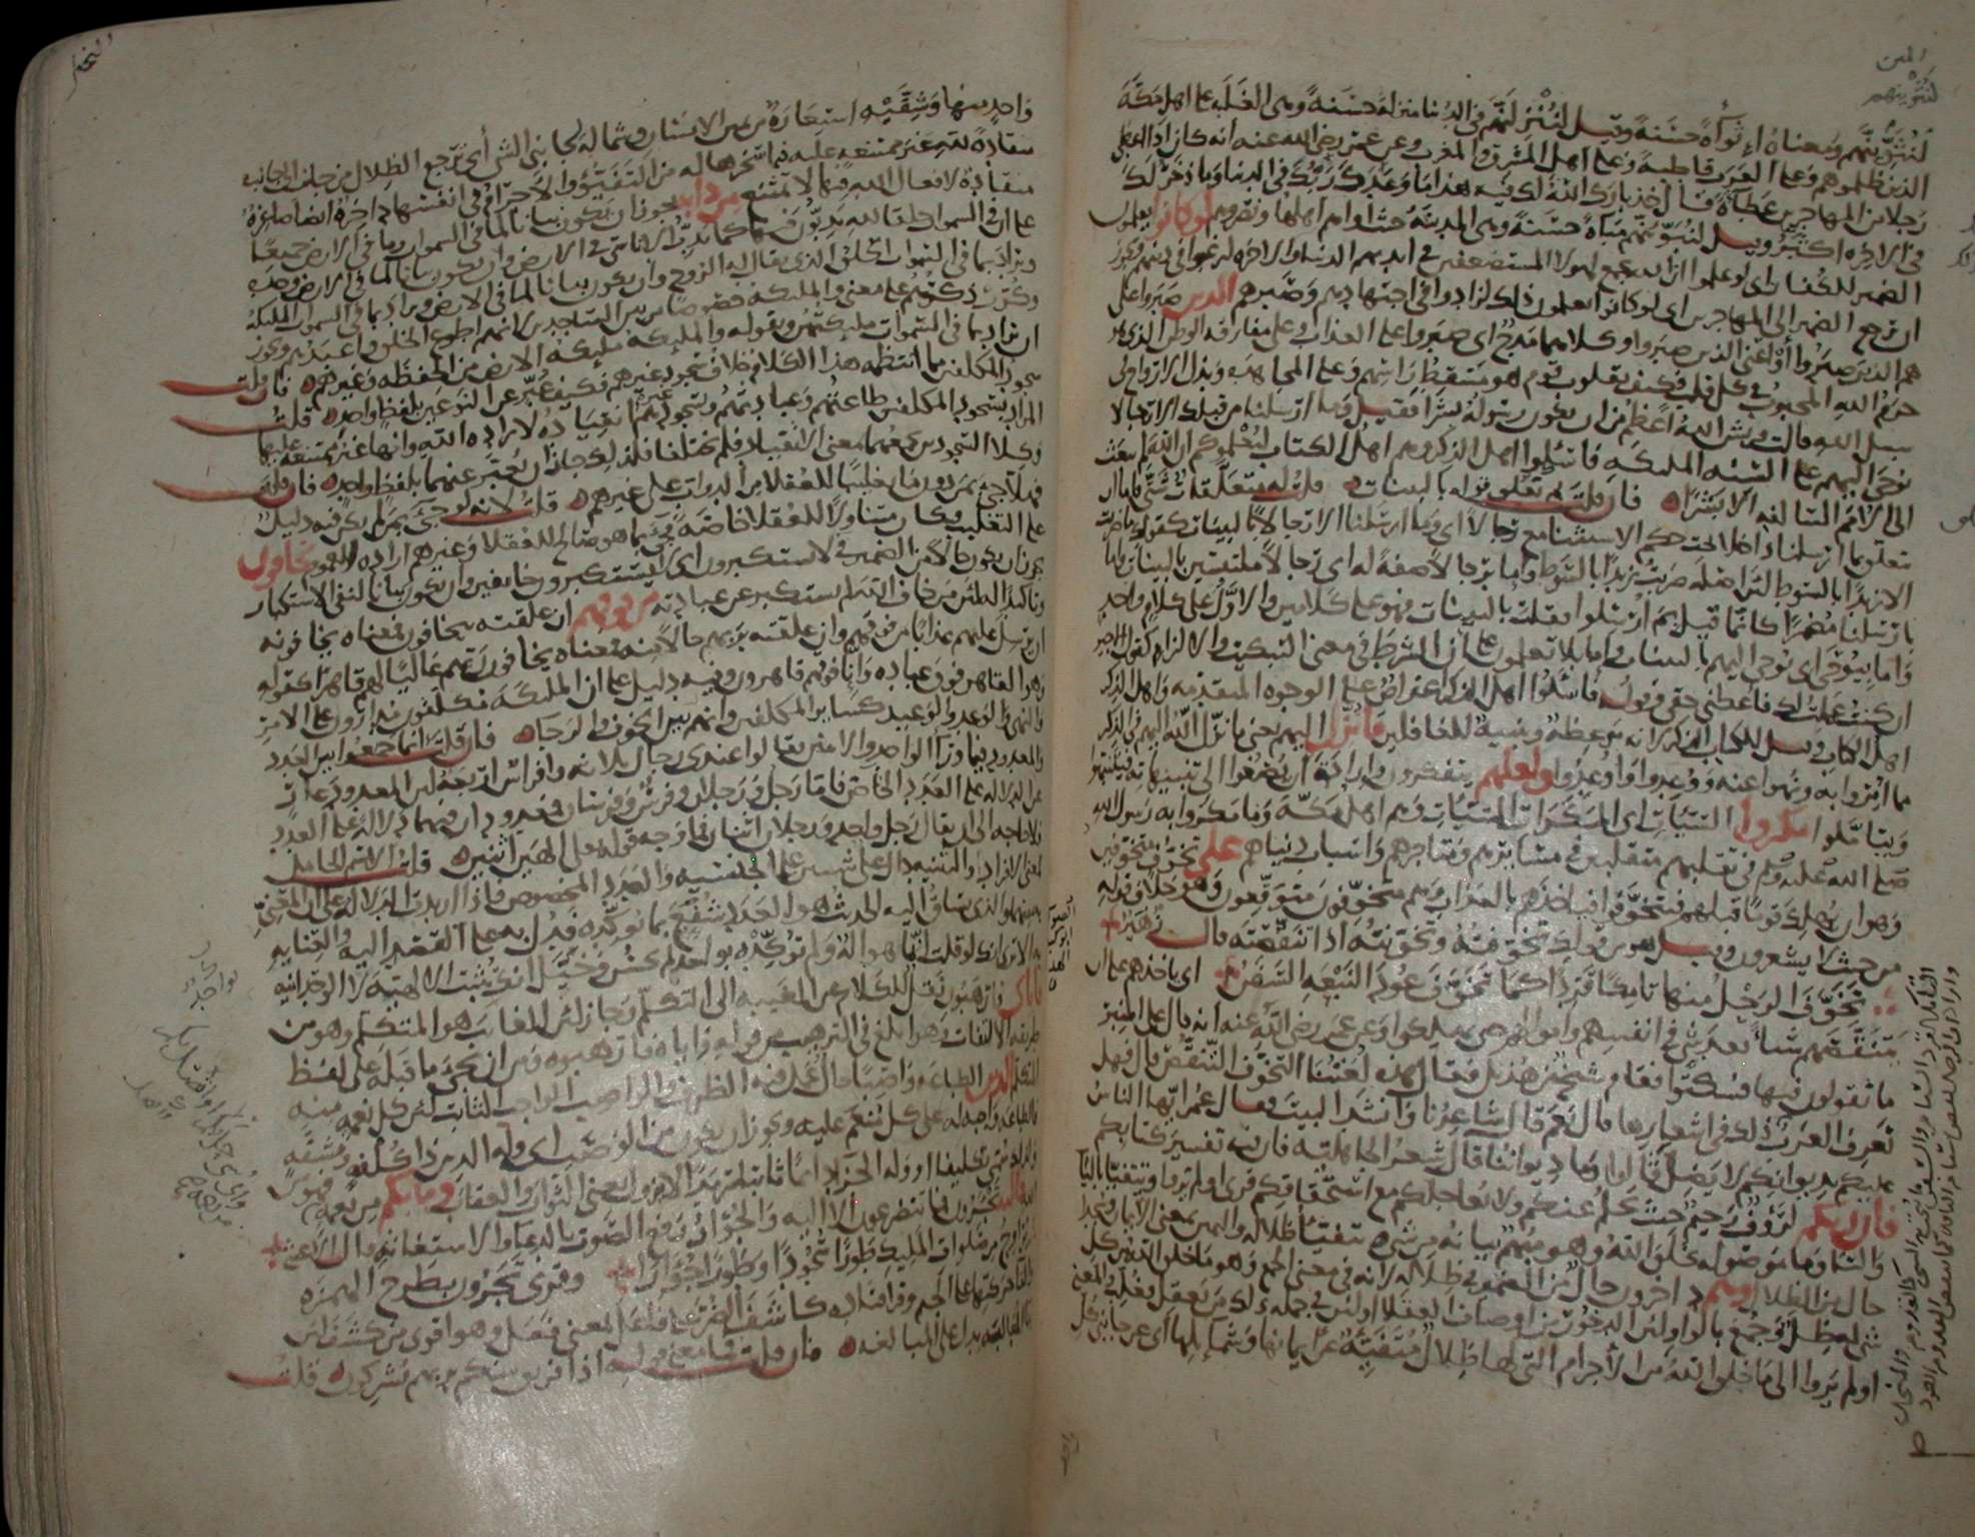 لنثوينهم
لنثوينهم ومعناه اثواءة حسنة وقيل لننزلنهم في الدنيا منزلة حسنة وهي الغلبة على اهل مكة
الذين ظلموهم وعلى العرب قاطبة وعلى اهل المشرق والمغرب وعن عمر رضي الله عنه انه كان اذا اعطى
رجلا من المهاجرين عطاء قال خذ بارك الله لك فيه هذا ما وعدك ربك في الدنيا وما ذخر لك
في الاخرة اكثر وقيل لنبوئنهم مباءة حسنة وهي المدينة حيث اواهم اهلها ونصروهم لو كانوا يعلمون
الضمير للكفار اي لو علموا ان الله يجمع لهولا المستضعفين في ايديهم الدنيا والاخرة لرغبوا في دينهم ويجوز
ان يرجع الضمير الى المهاجرين اي لو كانوا يعلمون ذلك لزادوا في اجتهادهم وصبرهم الذين صبروا على
هم الذين صبروا او اعني الذين صبروا وكلاهما مدح اي صبروا على العذاب وعلى مفارقة الوطن الذي هو
حرم الله المحبوب في كل قلب فكيف بقلوب قوم هو مسقط راسهم وعلى المجاهدة وبذل الارواح في
سبيل الله قالت قريش الله اعظم من ان يكون رسوله بشرا فقيل وما ارسلنا من قبلك الا رجالا
نوحي اليهم على السنة المليكة فاسئلوا اهل الذكر وهم اهل الكتاب ليعلموكم ان الله لم يبعث
الى الامم السالفة الا بشرا فان قلت بم تعلق قوله بالبينات قلت له متعلقات شتى فاما ان
يتعلق بما ارسلنا داخلا تحت حكم الاستثنا مع رجالا اي وما ارسلنا الا رجالا بالبينات كقولك ما ضربت
الا زيدا بالسوط لان اصله ضربت زيدا بالسوط واما برجالا صفة له اي رجالا ملتبسين بالبينات واما
بارسلنا مضمرا كانما قيل بم ارسلوا فقلت بالبينات فهو على كلامين والاول على كلام واحد
واما بيوحى اي نوحي اليهم بالبينات واما بلا تعلمون على ان الشرط في معنى التبكيت والالزام كقول الاجير
ان كنت عملت لك فاعطني حقي وقوله فاسئلوا اهل الذكر اعتراض على الوجوه المتقدمة واهل الذكر
اهل الكتاب وقيل للكتاب الذكر لانه موعظة وتنبيه للغافلين ما نزل اليهم يعني ما نزل الله اليهم في الذكر
مما امروا به ونهوا عنه ووعدوا واوعدوا ولعلهم يتفكرون وارادة ان يصغوا الى تنبيهاته فيتنبهوا
ويتاملوا مكروا السيئات اي المكرات السيئات وهم اهل مكة وما مكروا به رسول الله
صلى الله عليه وسلم في تقلبهم متقلبين في مسايرهم ومتاجرهم واسباب دنياهم على تخوف متخوفين
وهو ان يهلك قوما قبلهم فيتخوفوا فياخذهم بالعذاب وهم متخوفون متوقعون وهو خلاف قوله
من حيث لا يشعرون وقيل هو من قولك تخوفته وتخونته اذا تنقصته قال زهير
تخوف الرحل منها تامكا قردا كما تخوف عود النبعة السفن اي ياخذهم على ان
يتنقصهم شيئا بعد شي في انفسهم واموالهم حتى يهلكوا وعن عمر رضي الله عنه انه قال على المنبر
ما تقولون فيها فسكتوا فقام شيخ من هذيل فقال هذه لغتنا التخوف التنقص قال فهل
تعرف العرب ذلك في اشعارها قال نعم قال شاعرنا وانشد البيت فقال عمر ايها الناس
عليكم بديوانكم لا يضل قالوا وما ديواننا قال شعر الجاهلية فان فيه تفسير كتابكم
فان ربكم لرؤف رحيم حيث يحلم عنكم ولا يعاجلكم مع استحقاقكم قرى او لم يروا ويتفيا باليا
والتا وما موصولة بخلق الله وهو مبهم بيانه من شي يتفيؤ ظلاله واليمين بمعنى الايمان وسجدا
حال من الظلال وهم داخرون حال من الضمير في ظلاله لانه في معنى الجمع وهو ما خلق الله من كل
شي له ظل وجمع بالواو لان الدخور من اوصاف العقلا او لان في جملة ذلك من يعقل فغلب والمعنى
اولم يروا الى ما خلق الله من الاجرام التي لها ظلال متفيئة عن ايمانها وشمايلها اي عن جانبي كل
واحد منها وشقيه استعارة من يمين الانسان وشماله لجانبي الشي اي ترجع الظلال من جانب الى جانب
منقادة لله غير ممتنعة عليه فيما سخرها له من التفيؤ والاجرام في انفسها داخرة ايضا صاغرة
منقادة لافعال الله فيها لا تمتنع من دابة يجوز ان يكون بيانا لما في السموات وما في الارض جميعا
على ان في السموات خلقا لله يدبون فيها كما يدب الاناسي في الارض وان يكون بيانا لما في الارض وحده
ويراد بما في السموات الخلق الذي يقال له الروح وان يكون بيانا لما في الارض ويراد بما في السموات المليكة
وكرر ذكرهم على معنى والمليكة خصوصا من بين الساجدين لانهم اطوع الخلق واعبدهم ويجوز
ان يراد بما في السموات مليكتهن وبقوله والمليكة مليكة الارض من الحفظة وغيرهم فان قلت
سجود المكلفين مما انتظمه هذا الكلام خلاف سجود غيرهم فكيف عبر عن النوعين بلفظ واحد قلت
المراد بسجود المكلفين طاعتهم وعبادتهم وبسجود غيرهم انقياده لارادة الله وانها غير ممتنعة عليها
وكلا السجودين يجمعهما معنى الانقياد فلم يختلفا فلذلك جاز ان يعبر عنهما بلفظ واحد فان قلت
فهلا جي بمن دون ما تغليبا للعقلا من الدواب على غيرهم قلت لانه لو جي بمن لم يكن فيه دليل
على التغليب وكان متناولا للعقلا خاصة فجي بما هو صالح للعقلا وغيرهم ارادة للعموم يخافون
يجوز ان يكون حالا من الضمير في لا يستكبرون اي لا يستكبرون خايفين وان يكون بيانا لنفي الاستكبار
وتاكيدا له لان من خاف الله لم يستكبر عن عبادته من فوقهم ان علقته بيخافون فمعناه يخافونه
ان يرسل عليهم عذابا من فوقهم وان علقته بربهم حالا منه فمعناه يخافون ربهم عاليا لهم قاهرا كقوله
وهو القاهر فوق عباده وانا فوقهم قاهرون وفيه دليل على ان المليكة مكلفون مدارون على الامر
والنهي والوعد والوعيد كساير المكلفين وانهم بين الخوف والرجاء فان قلت انما جمعوا بين العدد
والمعدود فيما ورا الواحد والاثنين فقالوا عندي رجال ثلاثة وافراس اربعة لان المعدود عار
عن الدلالة على العدد الخاص فاما رجل ورجلان وفرس وفرسان فمعدودان فيهما دلالة على العدد
فلا حاجة الى ان يقال رجل واحد ورجلان اثنان فما وجه قوله الهين اثنين قلت الاسم الحامل
لمعنى الافراد والتثنية دال على شيئين على الجنسية والعدد المخصوص فاذا اريدت الدلالة على ان المعني
به منهما والذي يساق اليه الحديث هو العدد شفع بما يؤكده فدل به على القصد اليه والعناية به
الا ترى انك لو قلت انما هو اله ولم تؤكده بواحد لم يحسن وخيل انك تثبت الالهية لا الوحدانية
فاياي فارهبون نقل للكلام عن الغيبة الى التكلم وجاز لان الغايب هو المتكلم وهو من
طريقة الالتفات وهو ابلغ في الترهيب من قوله واياه فارهبوه ومن ان يجي ما قبله على لفظ
المتكلم الدين الطاعة واصبا حال عمل فيه الظرف والواصب الواجب الثابت لان كل نعمة منه
فالطاعة واجبة له على كل منعم عليه ويجوز ان يكون من الوصب اي وله الدين ذا كلفة ومشقة
ولذلك سمي تكليفا او وله الجزا دايما ثابتا سرمدا لا يزول يعني الثواب والعقاب وما بكم من نعمة
فاليه تجئرون فما تتضرعون الا اليه والجؤار رفع الصوت بالدعا والاستغاثة قال الاعشى
يراوح من صلوات المليك طورا سجودا وطورا جؤارا وقرى تجرون بطرح الهمزة
والقا حركتها على الجيم وقرا قتادة كاشف الضر على فاعل بمعنى فعل وهو اقوى من كشف لان
بنا المغالبة يدل على المبالغة فان قلت فما معنى قوله اذا فريق منكم بربهم يشركون قلت